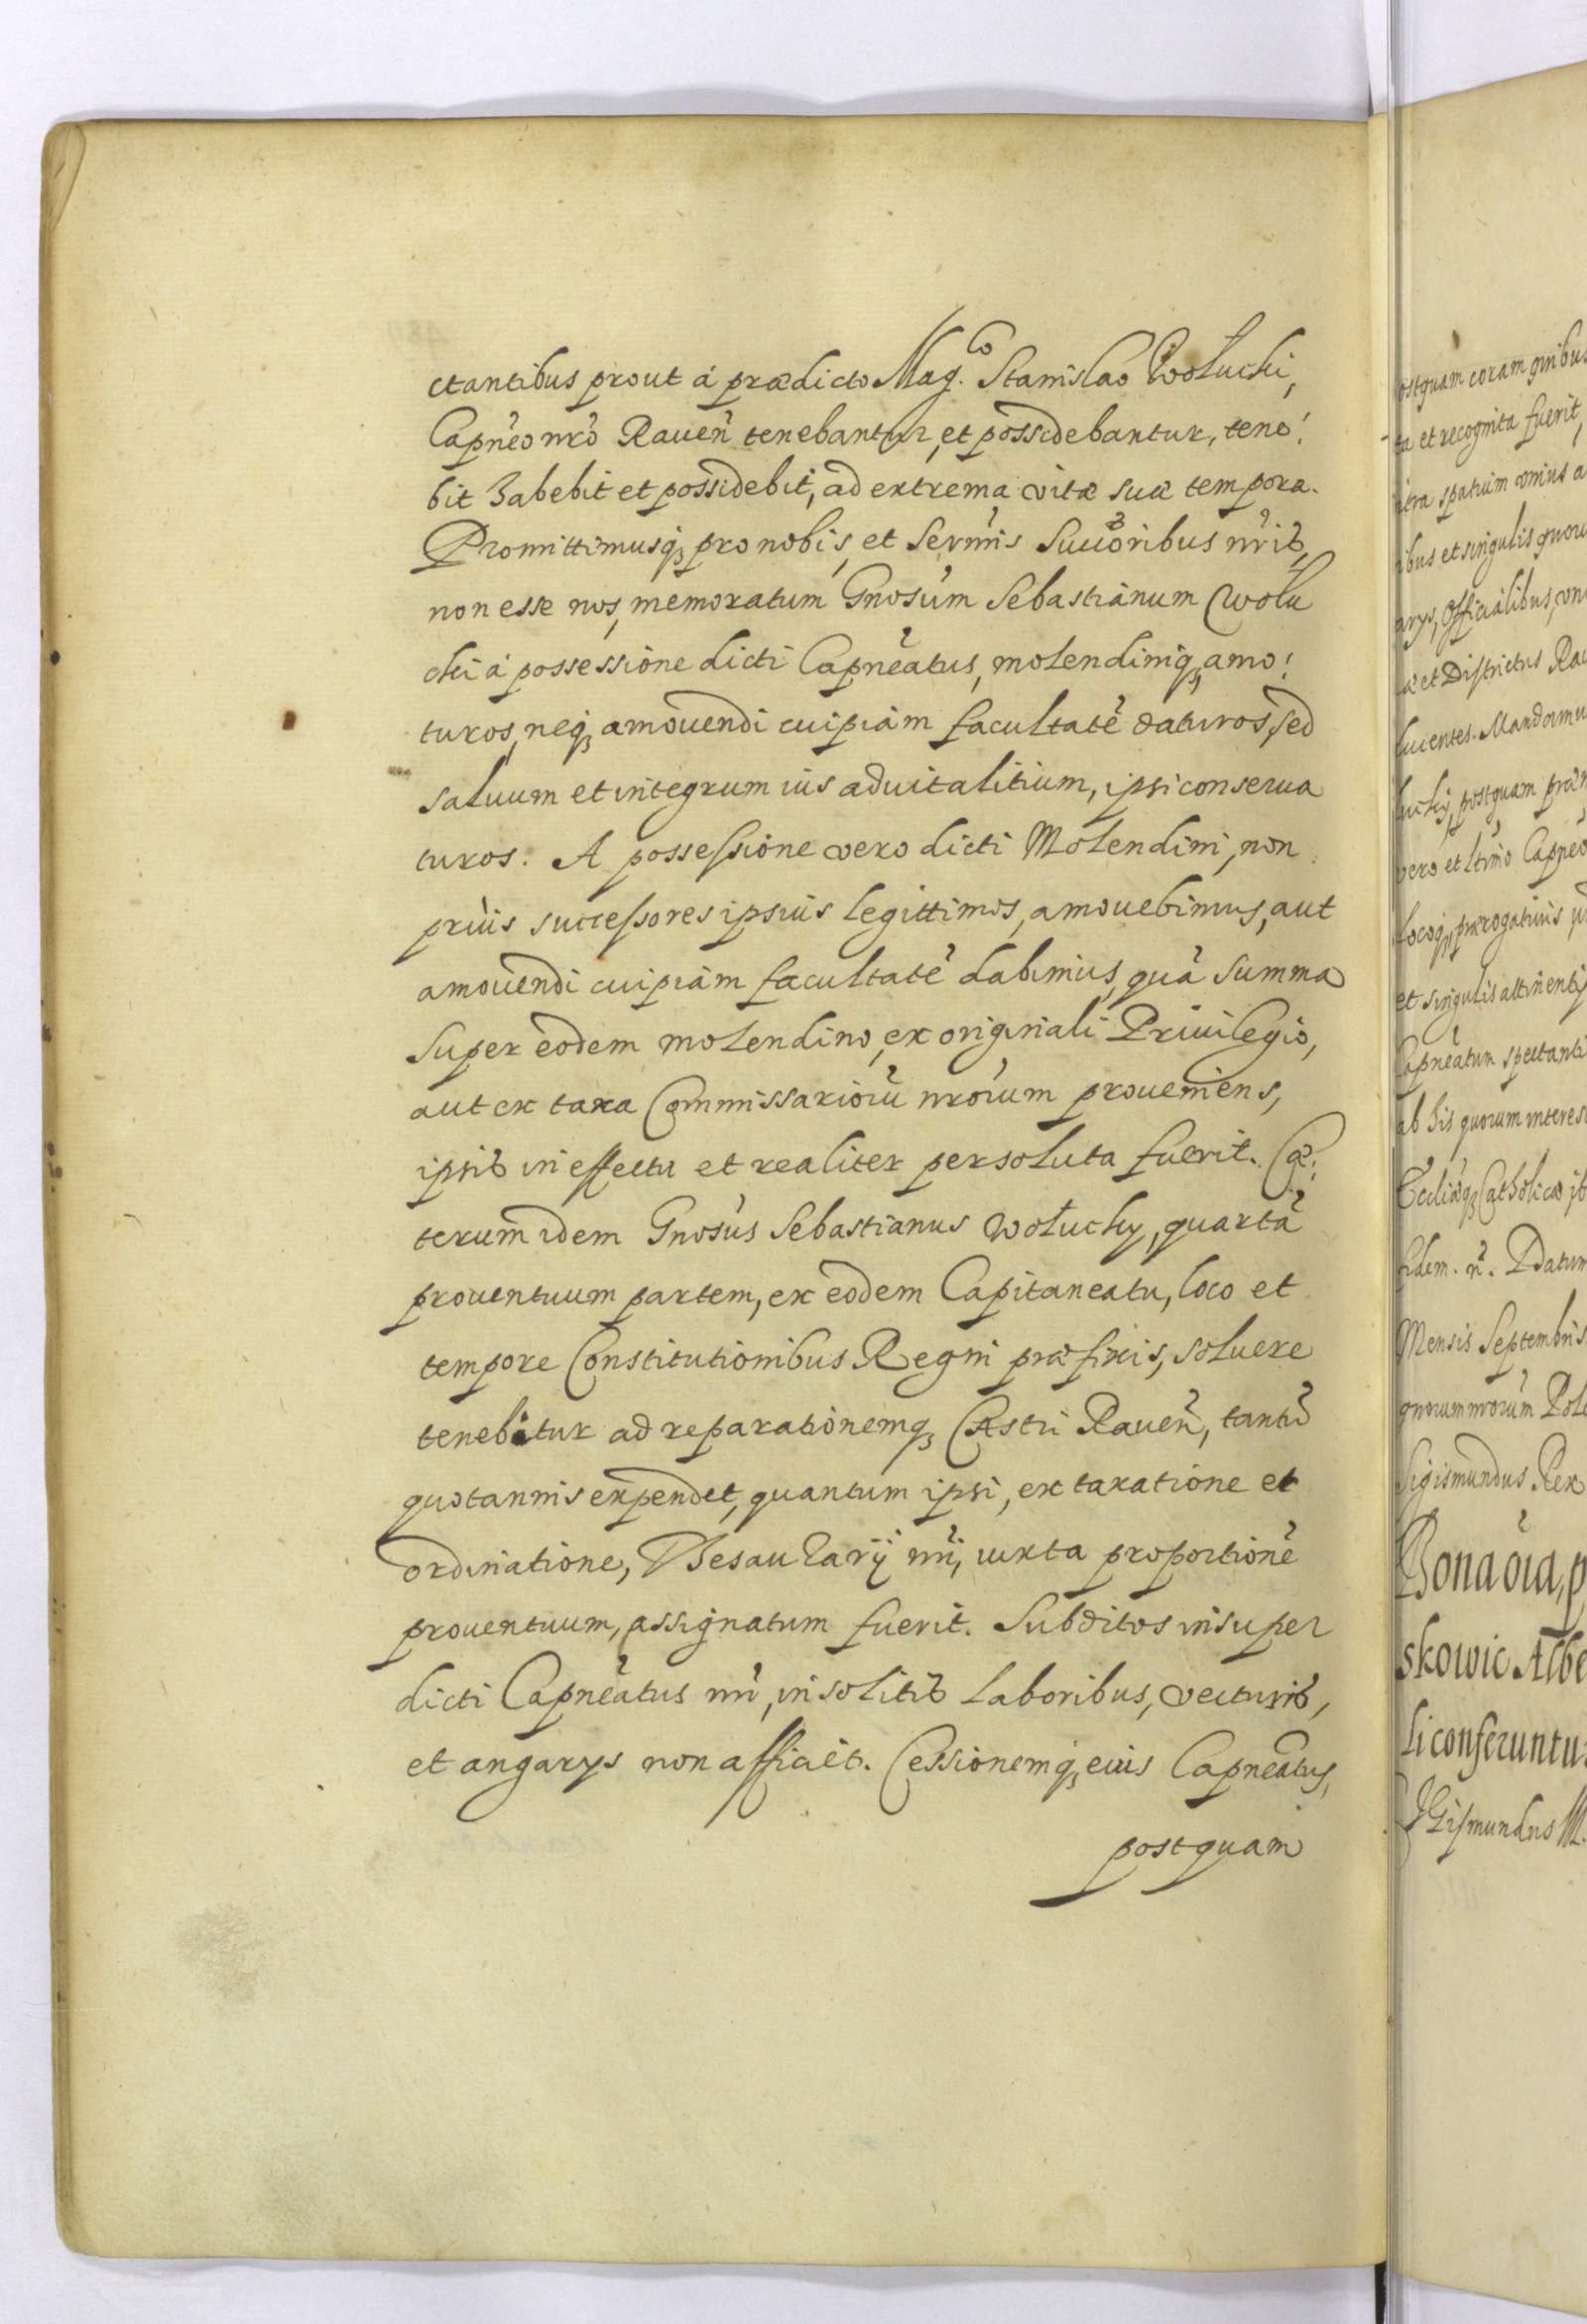 ctantibus prout á praedicto Mag.co Stanislao Wołucki,
Capn̄eo nr̄o Rauen̄ tenebantur, et possidebantur, tene:
bit habebit et possidebit, ad extrema vitæ suæ tempora.
Promittimusq, pro nobis, et Serm̄is Succ̄oribus nr̄is,
non esse nos, memoratum Gnosum Sebastianum Wołu
cki á possessione dicti Capn̄eatus, molendiniq, amo:
turos, neq, amouendi cuipiam facultatē daturos, sed
saluum et integrum ius aduitalitium, ipsi conserua
turos. A possessione vero dicti Molendini, non
priùs successores ipsius legittimos, amouebimus, aut
amouendi cuipiam facultatē dabimus, quā summa
super eodem molendino, ex originali Priuilegio,
aut ex taxa Commissariorū nr̄orum proueniens,
ipsis in effectu et realiter persoluta fuerit. Cæ:
terum idem Gnosus Sebastianus Wołucky, quartā
prouentuum partem, ex eodem Capitaneatu, loco et
tempore Constitutionibus Regni præfixis, soluere
tenebitur ad reparationemq, Castri Rauen̄, tantū
quotannis expendet, quantum ipsi, ex taxatione et
ordinatione, Thesaurarij nr̄i, iuxta proportionē
prouentuum, assignatum fuerit. Subditos insuper
dicti Capn̄eatus nr̄i, insolitis laboribus, vecturis,
et angarys non afficiet. Cessionemq, eius Capneatus,
postquam
ostquam coram quibus
ta et recognita fuerit,
intra spatium vnius a
ibus et singulis quoru
arys, Officialibus, con
æ et Districtus Rau
luentes. Mandamu
lucky, postquam præn
vero et ltim̄o Capn̄eo
locoq, prærogatiuis
et singulis attinentys
Capneatum spectanti
ab his quorum interest
Eccl̄iæq, Catholicæ
fidem. n̄. Datum
Mensis Septembris
gnorum nr̄orum Polo
Sigismundus Rex
Bona o͞ia, p
skowic Albe
li conferuntur
SIGismundus